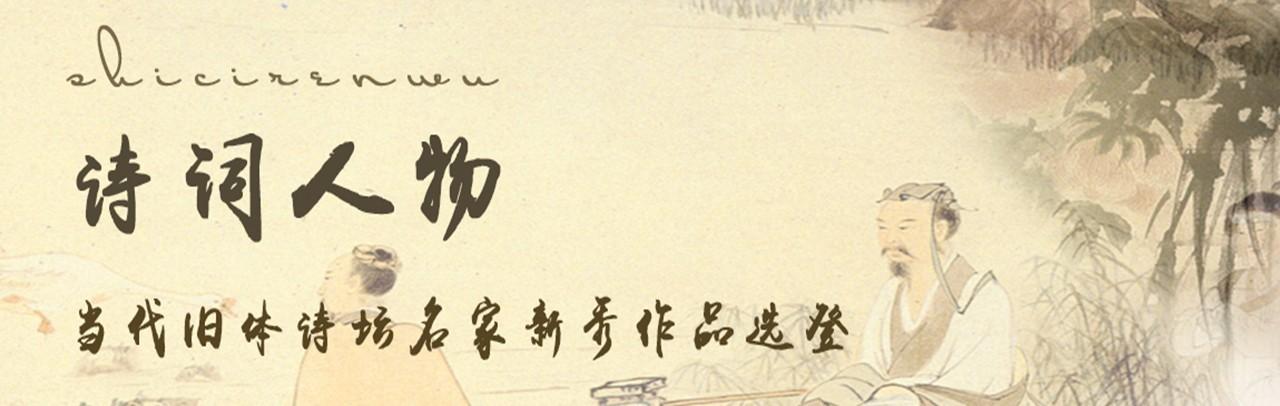 shicirenwu
诗词人物
当代旧体诗坛名家新秀作品选登